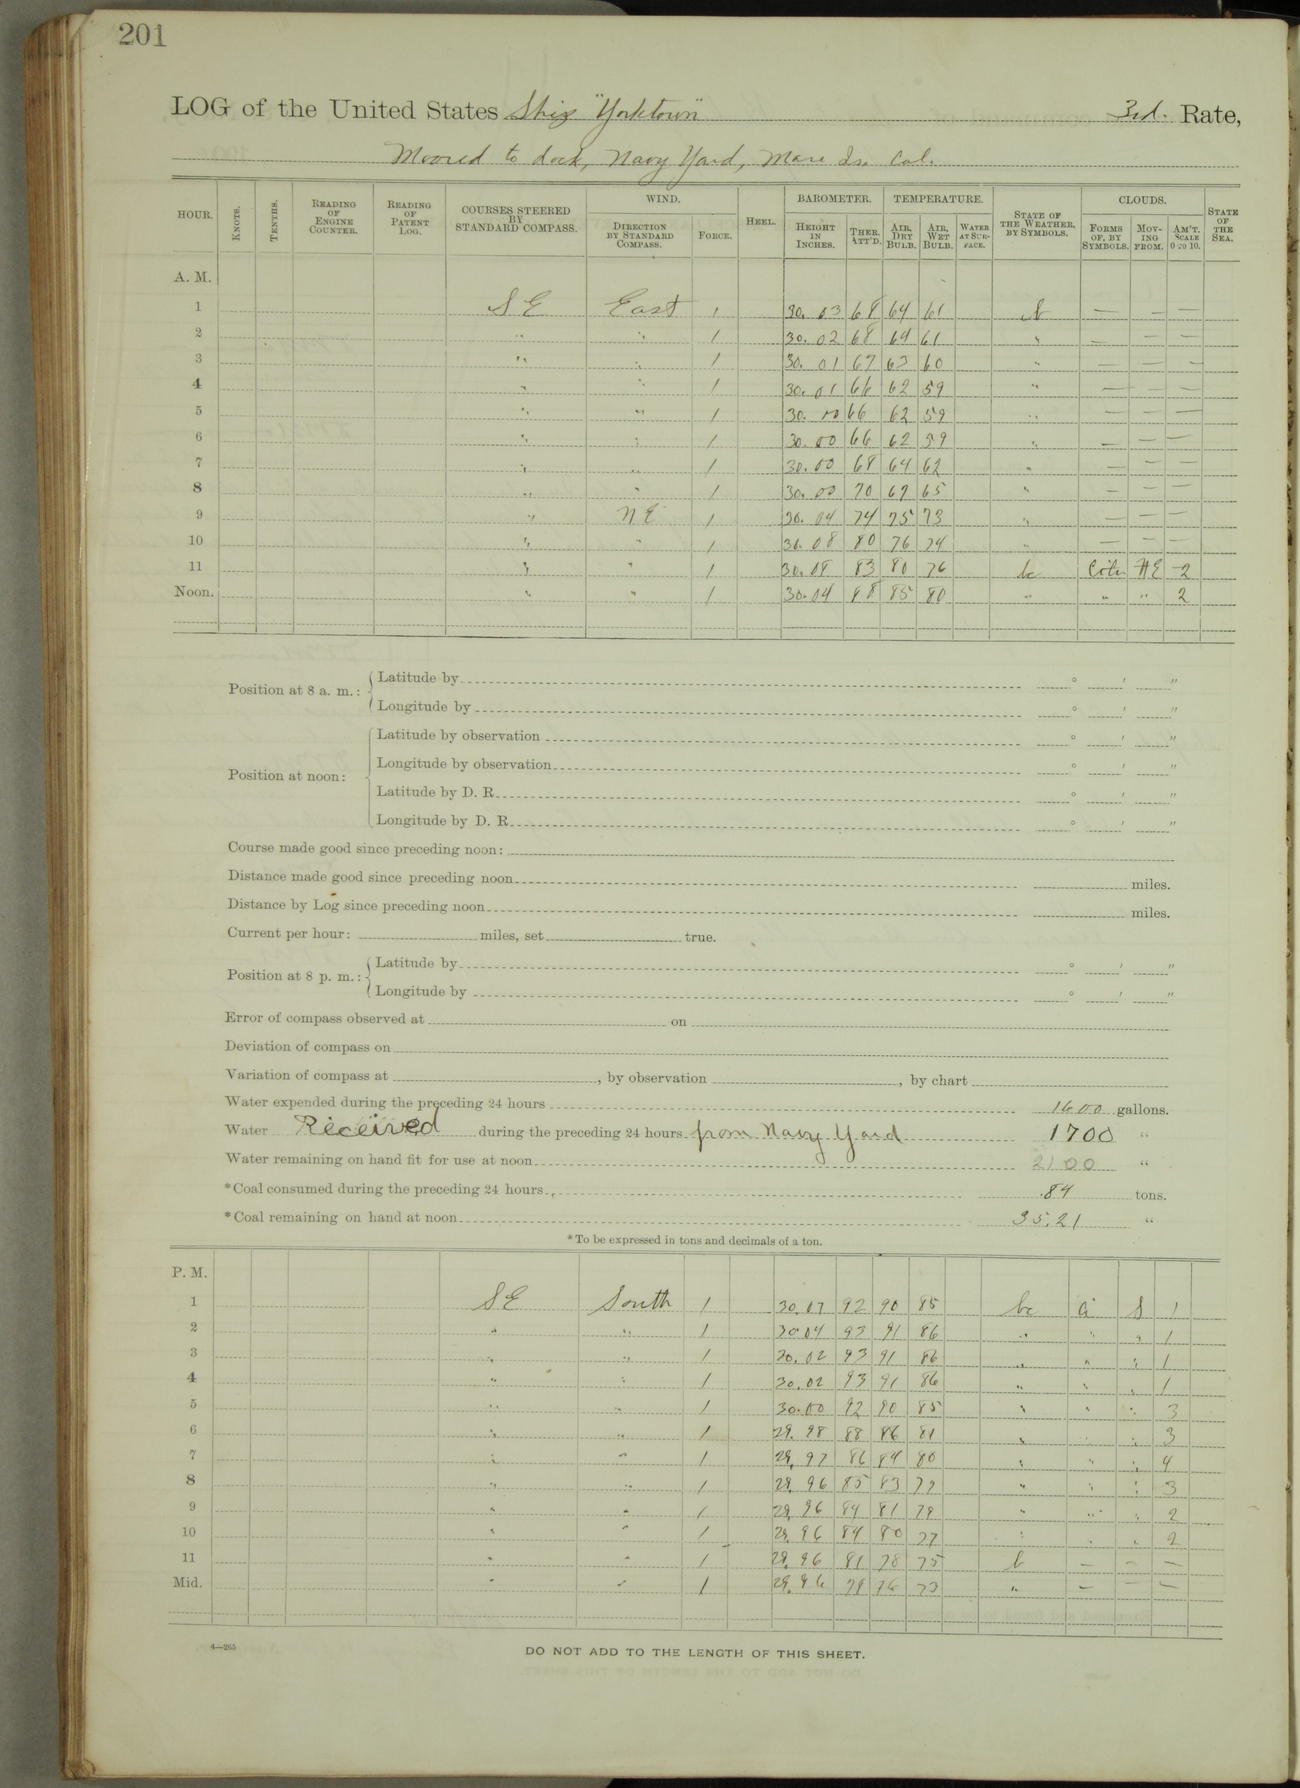 201
LOG of the United States Ship "Yorktown" 3rd. Rate,
Moored to dock, Navy Yard, Mare Is. Cal.
HOUR. KNOTS. TENTHS. READING OF ENGINE COUNTER. READING OF PATENT LOG. COURSES STEERED BY STANDARD COMPASS. WIND. DIRECTION BY STANDARD COMPASS. FORCE. HEEL. BAROMETER. HEIGHT IN INCHES. THER. ATT'D. TEMPERATURE. AIR, DRY BULB. AIR, WET BULB. WATER AT SURFACE. STATE OF THE WEATHER, BY SYMBOLS. CLOUDS. FORMS OF, BY SYMBOLS. MOVING FROM. AM'T. SCALE 0 TO 10. STATE OF THE SEA.
A. M.
1 SE East 1 30.03 68 64 61 b — — —
2 " " 1 30.02 68 64 61 " — — —
3 " " 1 30.01 67 63 60 " — — —
4 " " 1 30.01 66 62 59 " — — —
5 " " 1 30.00 66 62 59 " — — —
6 " " 1 30.00 66 62 59 " — — —
7 " " 1 30.00 68 64 62 " — — —
8 " " 1 30.00 70 67 65 " — — —
9 " NE 1 30.04 74 75 73 " — — —
10 " " 1 30.08 80 76 74 " — — —
11 " " 1 30.08 83 80 76 bc NE 2
Noon. " " 1 30.04 88 85 80 " " " 2
Position at 8 a. m.: Latitude by ° ' "
Longitude by ° ' "
Position at noon: Latitude by observation ° ' "
Longitude by observation ° ' "
Latitude by D. R. ° ' "
Longitude by D. R. ° ' "
Course made good since preceding noon:
Distance made good since preceding noon miles.
Distance by Log since preceding noon miles.
Current per hour: miles, set true.
Position at 8 p. m.: Latitude by ° ' "
Longitude by ° ' "
Error of compass observed at on
Deviation of compass on
Variation of compass at , by observation , by chart
Water expended during the preceding 24 hours 1600 gallons.
Water Received during the preceding 24 hours from Navy Yard 1700 "
Water remaining on hand fit for use at noon 2100 "
*Coal consumed during the preceding 24 hours .84 tons.
*Coal remaining on hand at noon 35.21 "
*To be expressed in tons and decimals of a ton.
P. M.
1 SE South 1 30.07 92 90 85 bc Ci S 1
2 " " 1 30.04 93 91 86 " " " 1
3 " " 1 30.02 93 91 86 " " " 1
4 " " 1 30.02 93 91 86 " " " 1
5 " " 1 30.00 92 90 85 " " " 3
6 " " 1 29.98 88 86 81 " " " 3
7 " " 1 29.97 86 84 80 " " " 4
8 " " 1 29.96 85 83 79 " " " 3
9 " " 1 29.96 84 81 78 " " " 2
10 " " 1 29.96 84 80 77 " " " 2
11 " " 1 29.96 81 78 75 b — — —
Mid. " " 1 29.96 79 76 73 " — — —
4—265
DO NOT ADD TO THE LENGTH OF THIS SHEET.